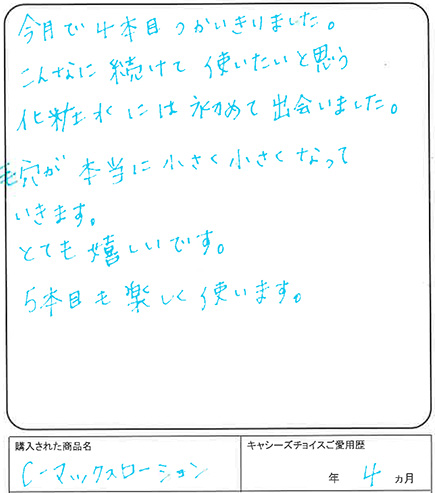 今月で4本目つかいきりました。
こんなに続けて使いたいと思う
化粧水には初めて出会いました。
毛穴が本当に小さく小さくなって
いきます。
とても嬉しいです。
5本目も楽しく使います。
購入された商品名
C-マックスローション
キャシーズチョイスご愛用歴
年 4 ヵ月